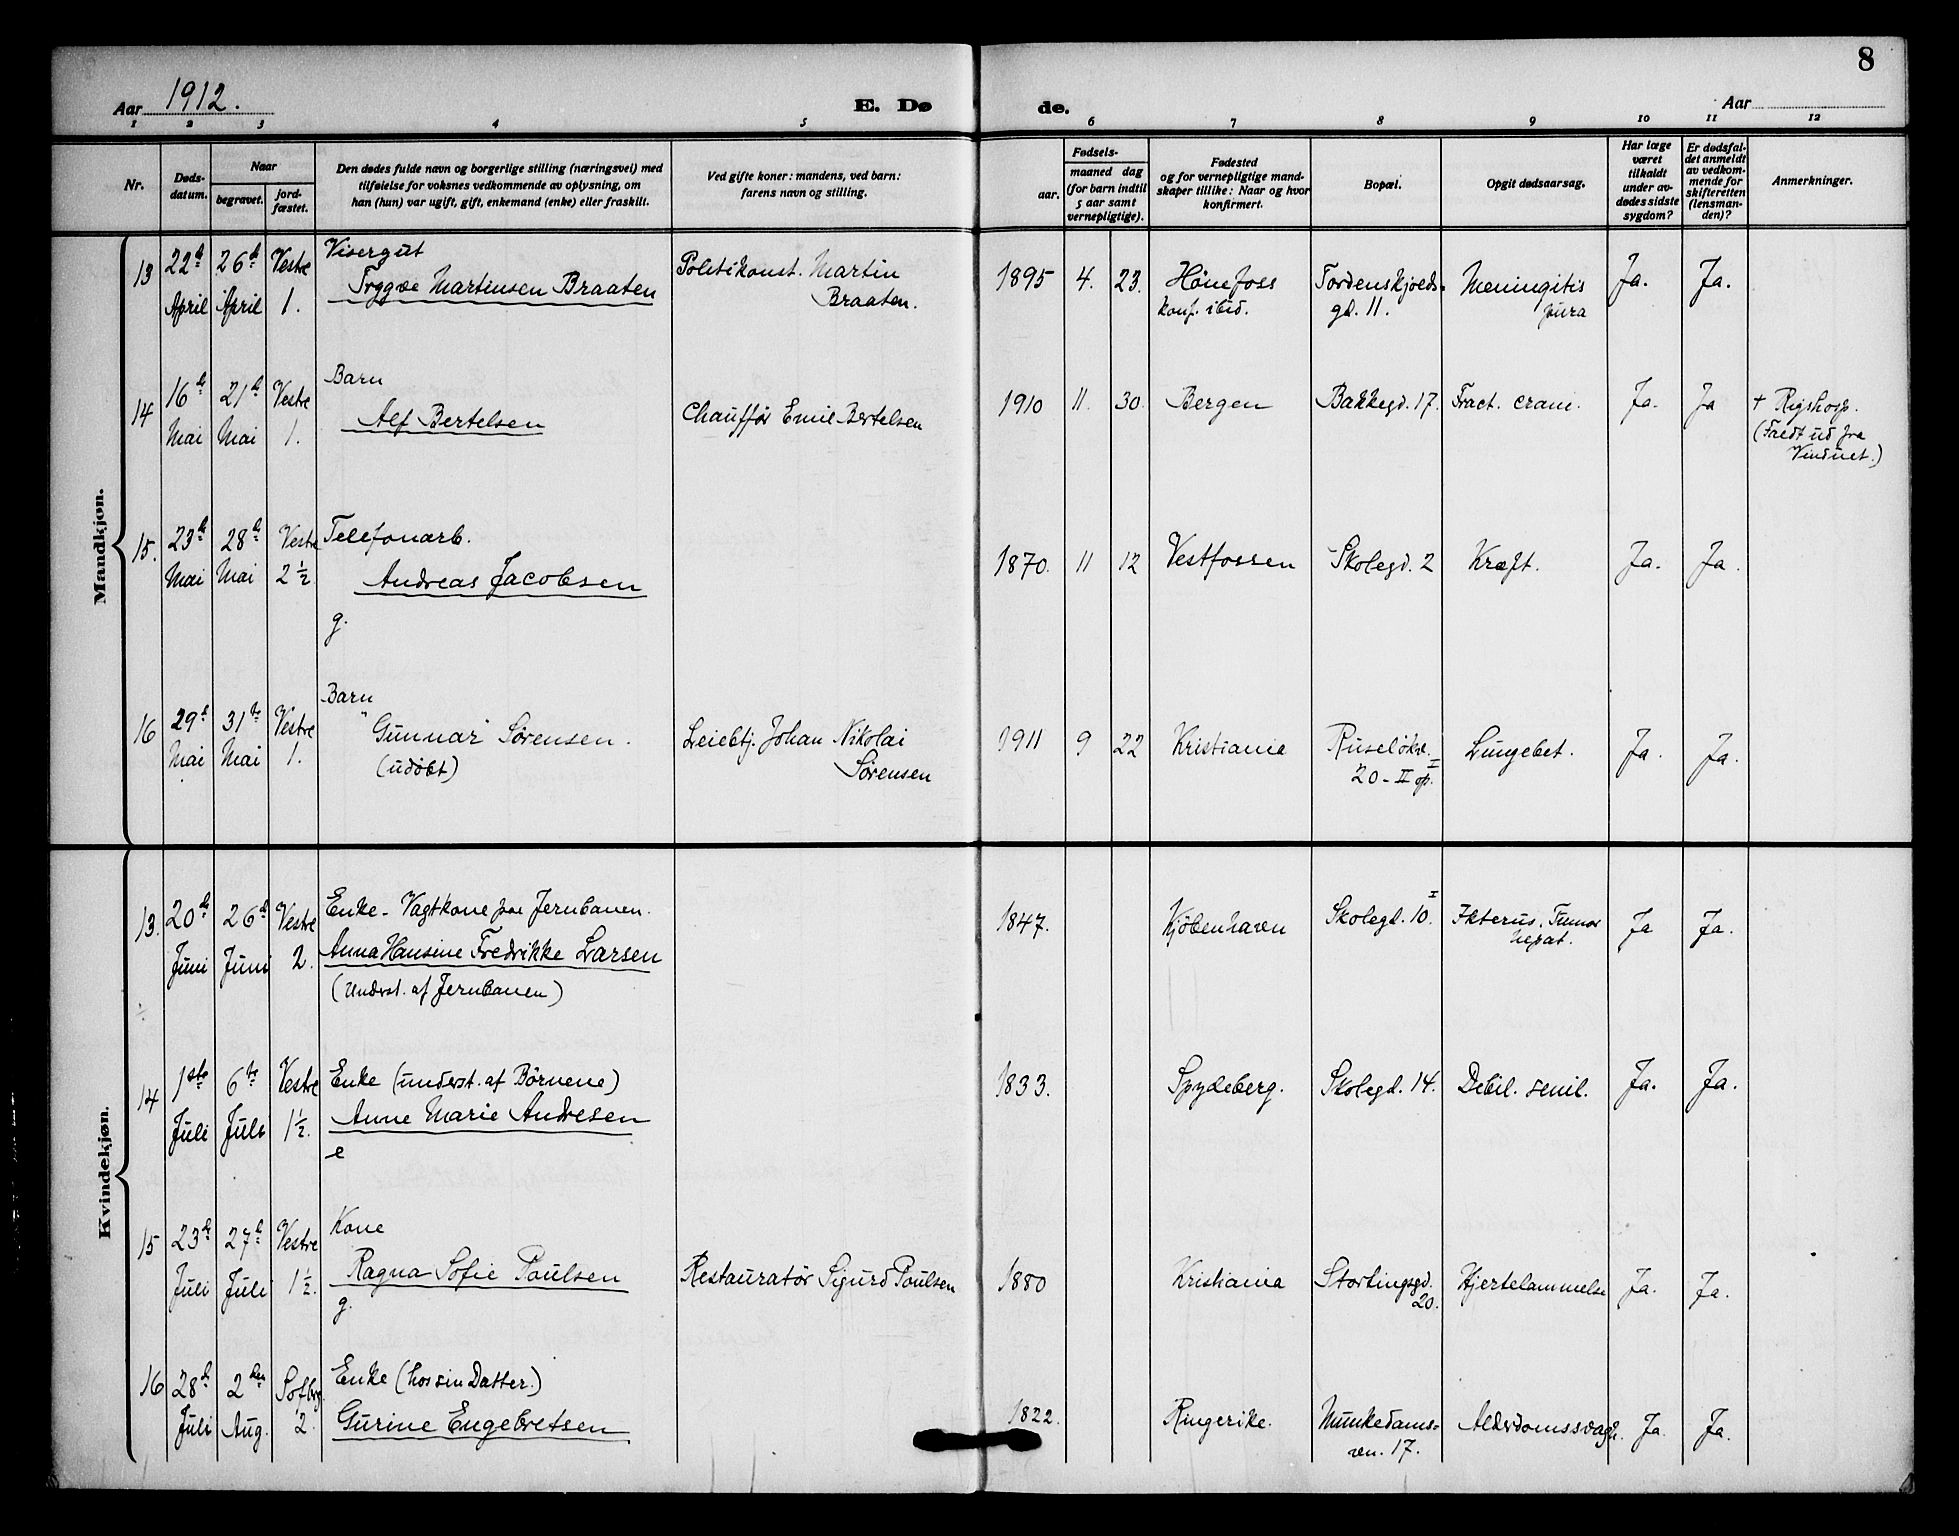 8
Aar 1912.
E. Dø
de.
Aar
1 2 3 4 5 6 7 8 9 10 11 12
Nr.
Døds-
datum.
Naar
begravet.
jord-
fæstet.
Den dødes fulde navn og borgerlige stilling (næringsvei) med
tilføielse for voksnes vedkommende av oplysning, om
han (hun) var ugift, gift, enkemand (enke) eller fraskilt.
Ved gifte koner: mandens, ved barn:
farens navn og stilling.
Fødsels-
aar.
maaned dag
(for barn indtil
5 aar samt
vernepligtige).
Fødested
og for vernepligtige mand-
skaper tillike: Naar og hvor
konfirmert.
Bopæl.
Opgit dødsaarsag.
Har læge
været
tilkaldt
under av-
dødes sidste
sygdom?
Er dødsfal-
det anmeldt
av vedkom-
mende for
skifteretten
(lensman-
den)?
Anmerkninger.
Mandkjøn.
13
22d
April
26d
April
Vestre
1.
Visergut
Tryggve Martinsen Braaten
Politikonst. Martin
Braaten.
1895 4. 23.
Hönefoss
konf. ibid.
Tordenskjolds-
gd. 11.
Meningitis
pura
Ja.
Ja.
14
16de
Mai
21d
Mai
Vestre
1.
Barn
Alf Bertelsen
Chauffør Emil Bertelsen
1910 11. 30.
Bergen
Bakkegd. 17.
Fract. crani.
Ja.
Ja
+ Rigshosp.
(Faldt ud fra
Vinduet.)
15.
23d
Mai
28d
Mai
Vestre
2 1/2.
Telefonarb.
Andreas Jacobsen
g.
1870. 11 12
Vestfossen
Skolegd. 2
Kræft.
Ja.
Ja.
16
29d
Mai
31te
Mai
Vestre
1.
Barn
"Gunnar" Sørensen.
(udøbt)
Leiebtj. Johan Nikolai
Sørensen
1911 9 22
Kristiania
Ruseløkv.
20 - II op.
Lungebet.
Ja.
Ja.
Kvindekjøn.
13.
20de
Juni
26d
Juni
Vestre
2.
Enke - Vagtkone paa Jernbanen.
Anna Hansine Fredrikke Larsen
(underst. af Jernbanen)
1847.
Kjøbenhavn
Skolegd. 10. I
Ikterus, Tumor
hepat.
Ja
Ja.
14
1ste
Juli
6te
Juli
Vestre
1 1/2.
Enke (underst. af Børnene)
Anne Marie Andresen
e
1833.
Spydeberg.
Skolegd. 14.
Debil. senil.
Ja.
Ja.
15
23d
Juli
27d
Juli
Vestre
1 1/2.
Kone
Ragna Sofie Poulsen
g.
Restauratør Sigurd Poulsen
1880
Kristiania
Stortingsgd.
20.
Hjertelammelse
Ja.
Ja.
16
28d
Juli
2den
Aug.
Sofbrg.
2.
Enke (hos sin Datter.)
Gurine Engebretsen
1822.
Ringerike.
Munkedams-
vn. 17.
Alderdomssvagh.
Ja.
Ja.